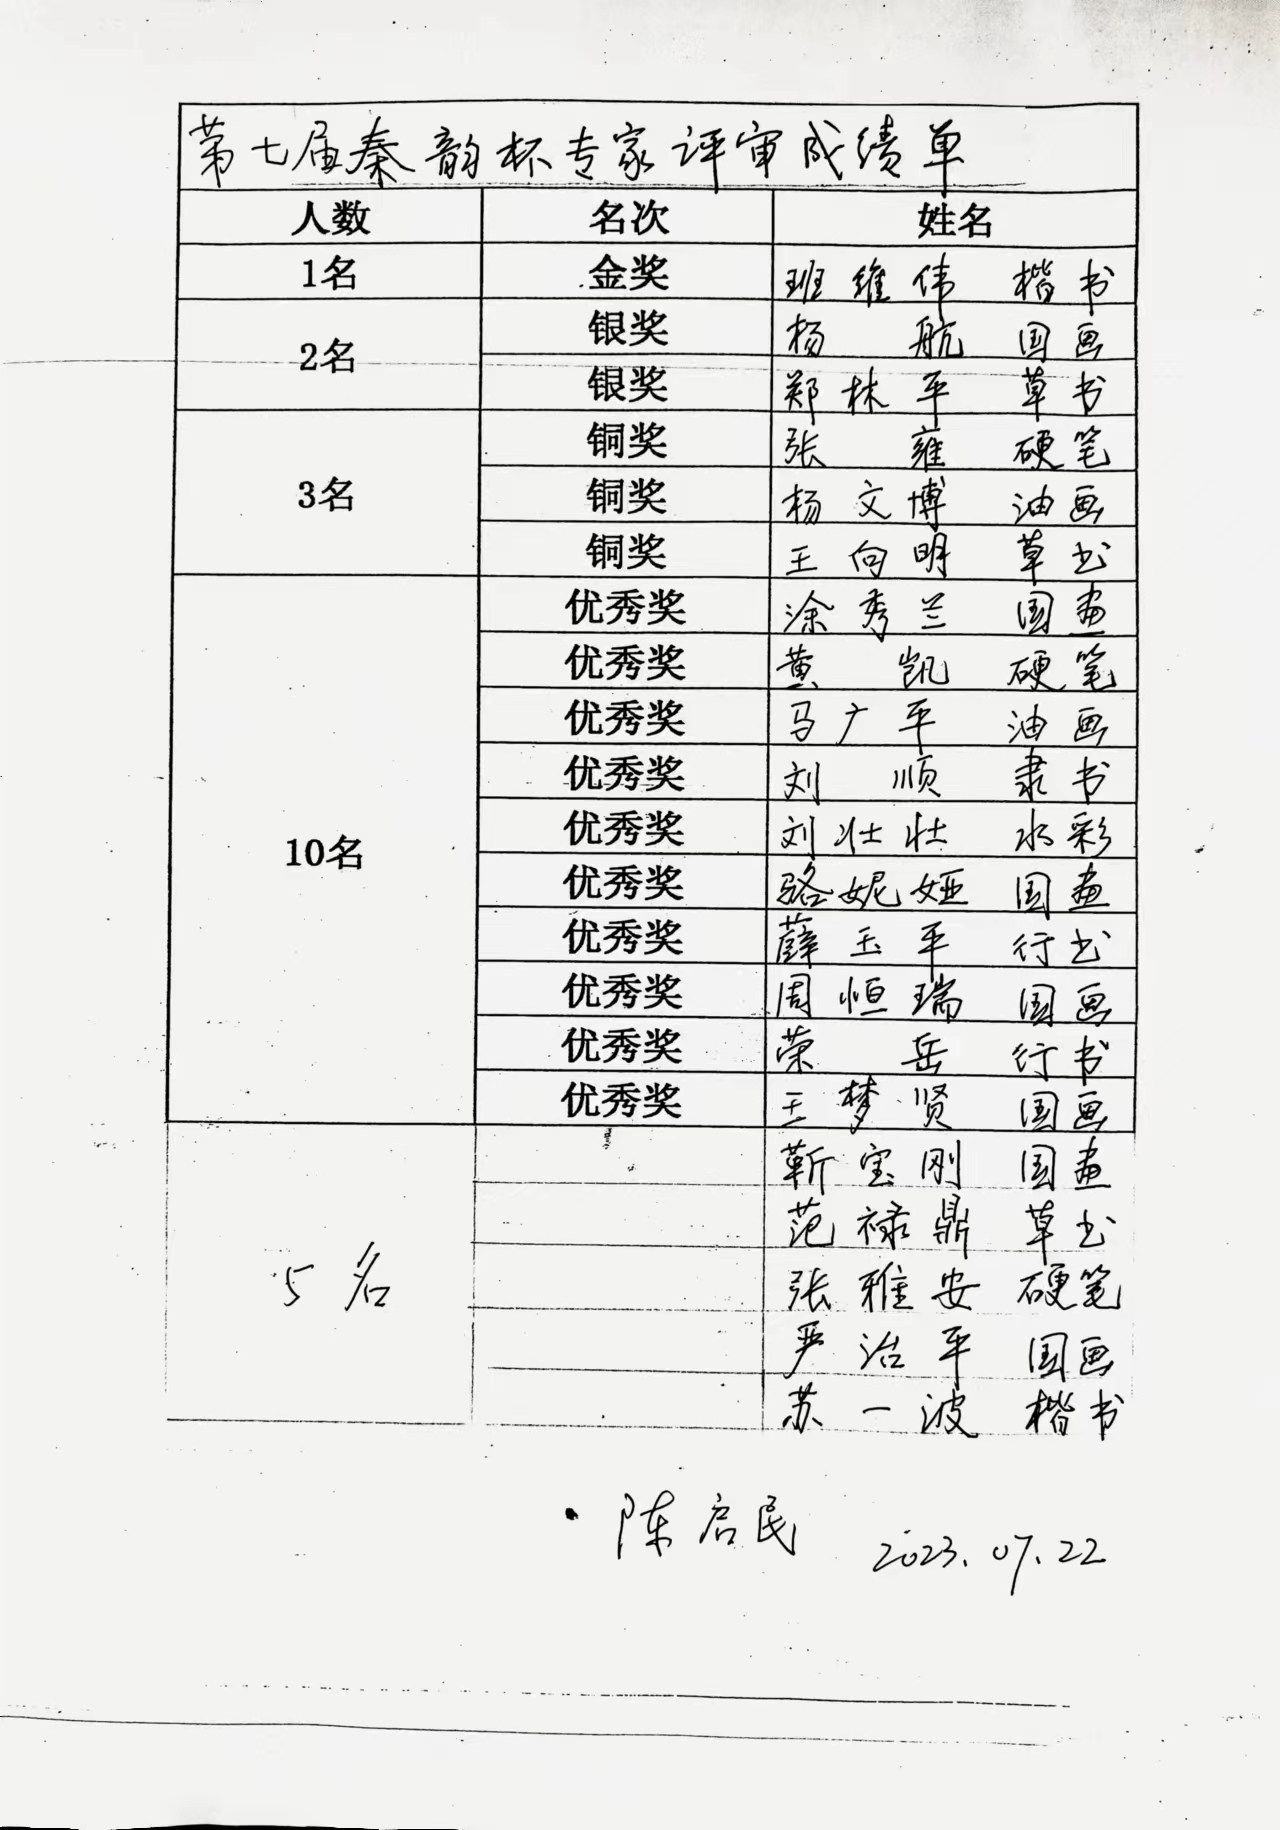 第七届秦韵杯专家评审成绩单
人数 名次 姓名
1名 金奖 班维伟 楷书
2名 银奖 杨航 国画
银奖 郑林平 草书
3名 铜奖 张雍 硬笔
铜奖 杨文博 油画
铜奖 王向明 草书
10名 优秀奖 涂秀兰 国画
优秀奖 黄凯 硬笔
优秀奖 马广平 油画
优秀奖 刘顺 隶书
优秀奖 刘壮壮 水彩
优秀奖 骆妮娅 国画
优秀奖 薛玉平 行书
优秀奖 周恒瑞 国画
优秀奖 荣岳 行书
优秀奖 王梦贤 国画
5名 靳宝刚 国画
范禄鼎 草书
张雅安 硬笔
严治平 国画
苏一波 楷书
陈启民 2023.07.22